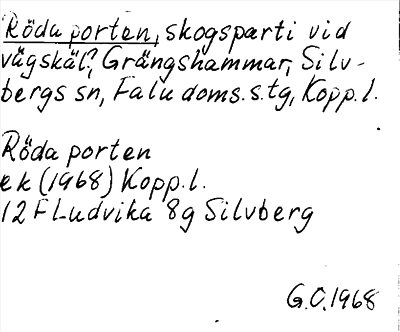 Röda porten, skogsparti vid
vägskäl?, Grängshammar, Silv-
bergs sn, Falu doms.s.tg, Kopp.l.
Röda porten
ek (1968) Kopp.l.
12 F Ludvika 8g Silvberg
G.O. 1968